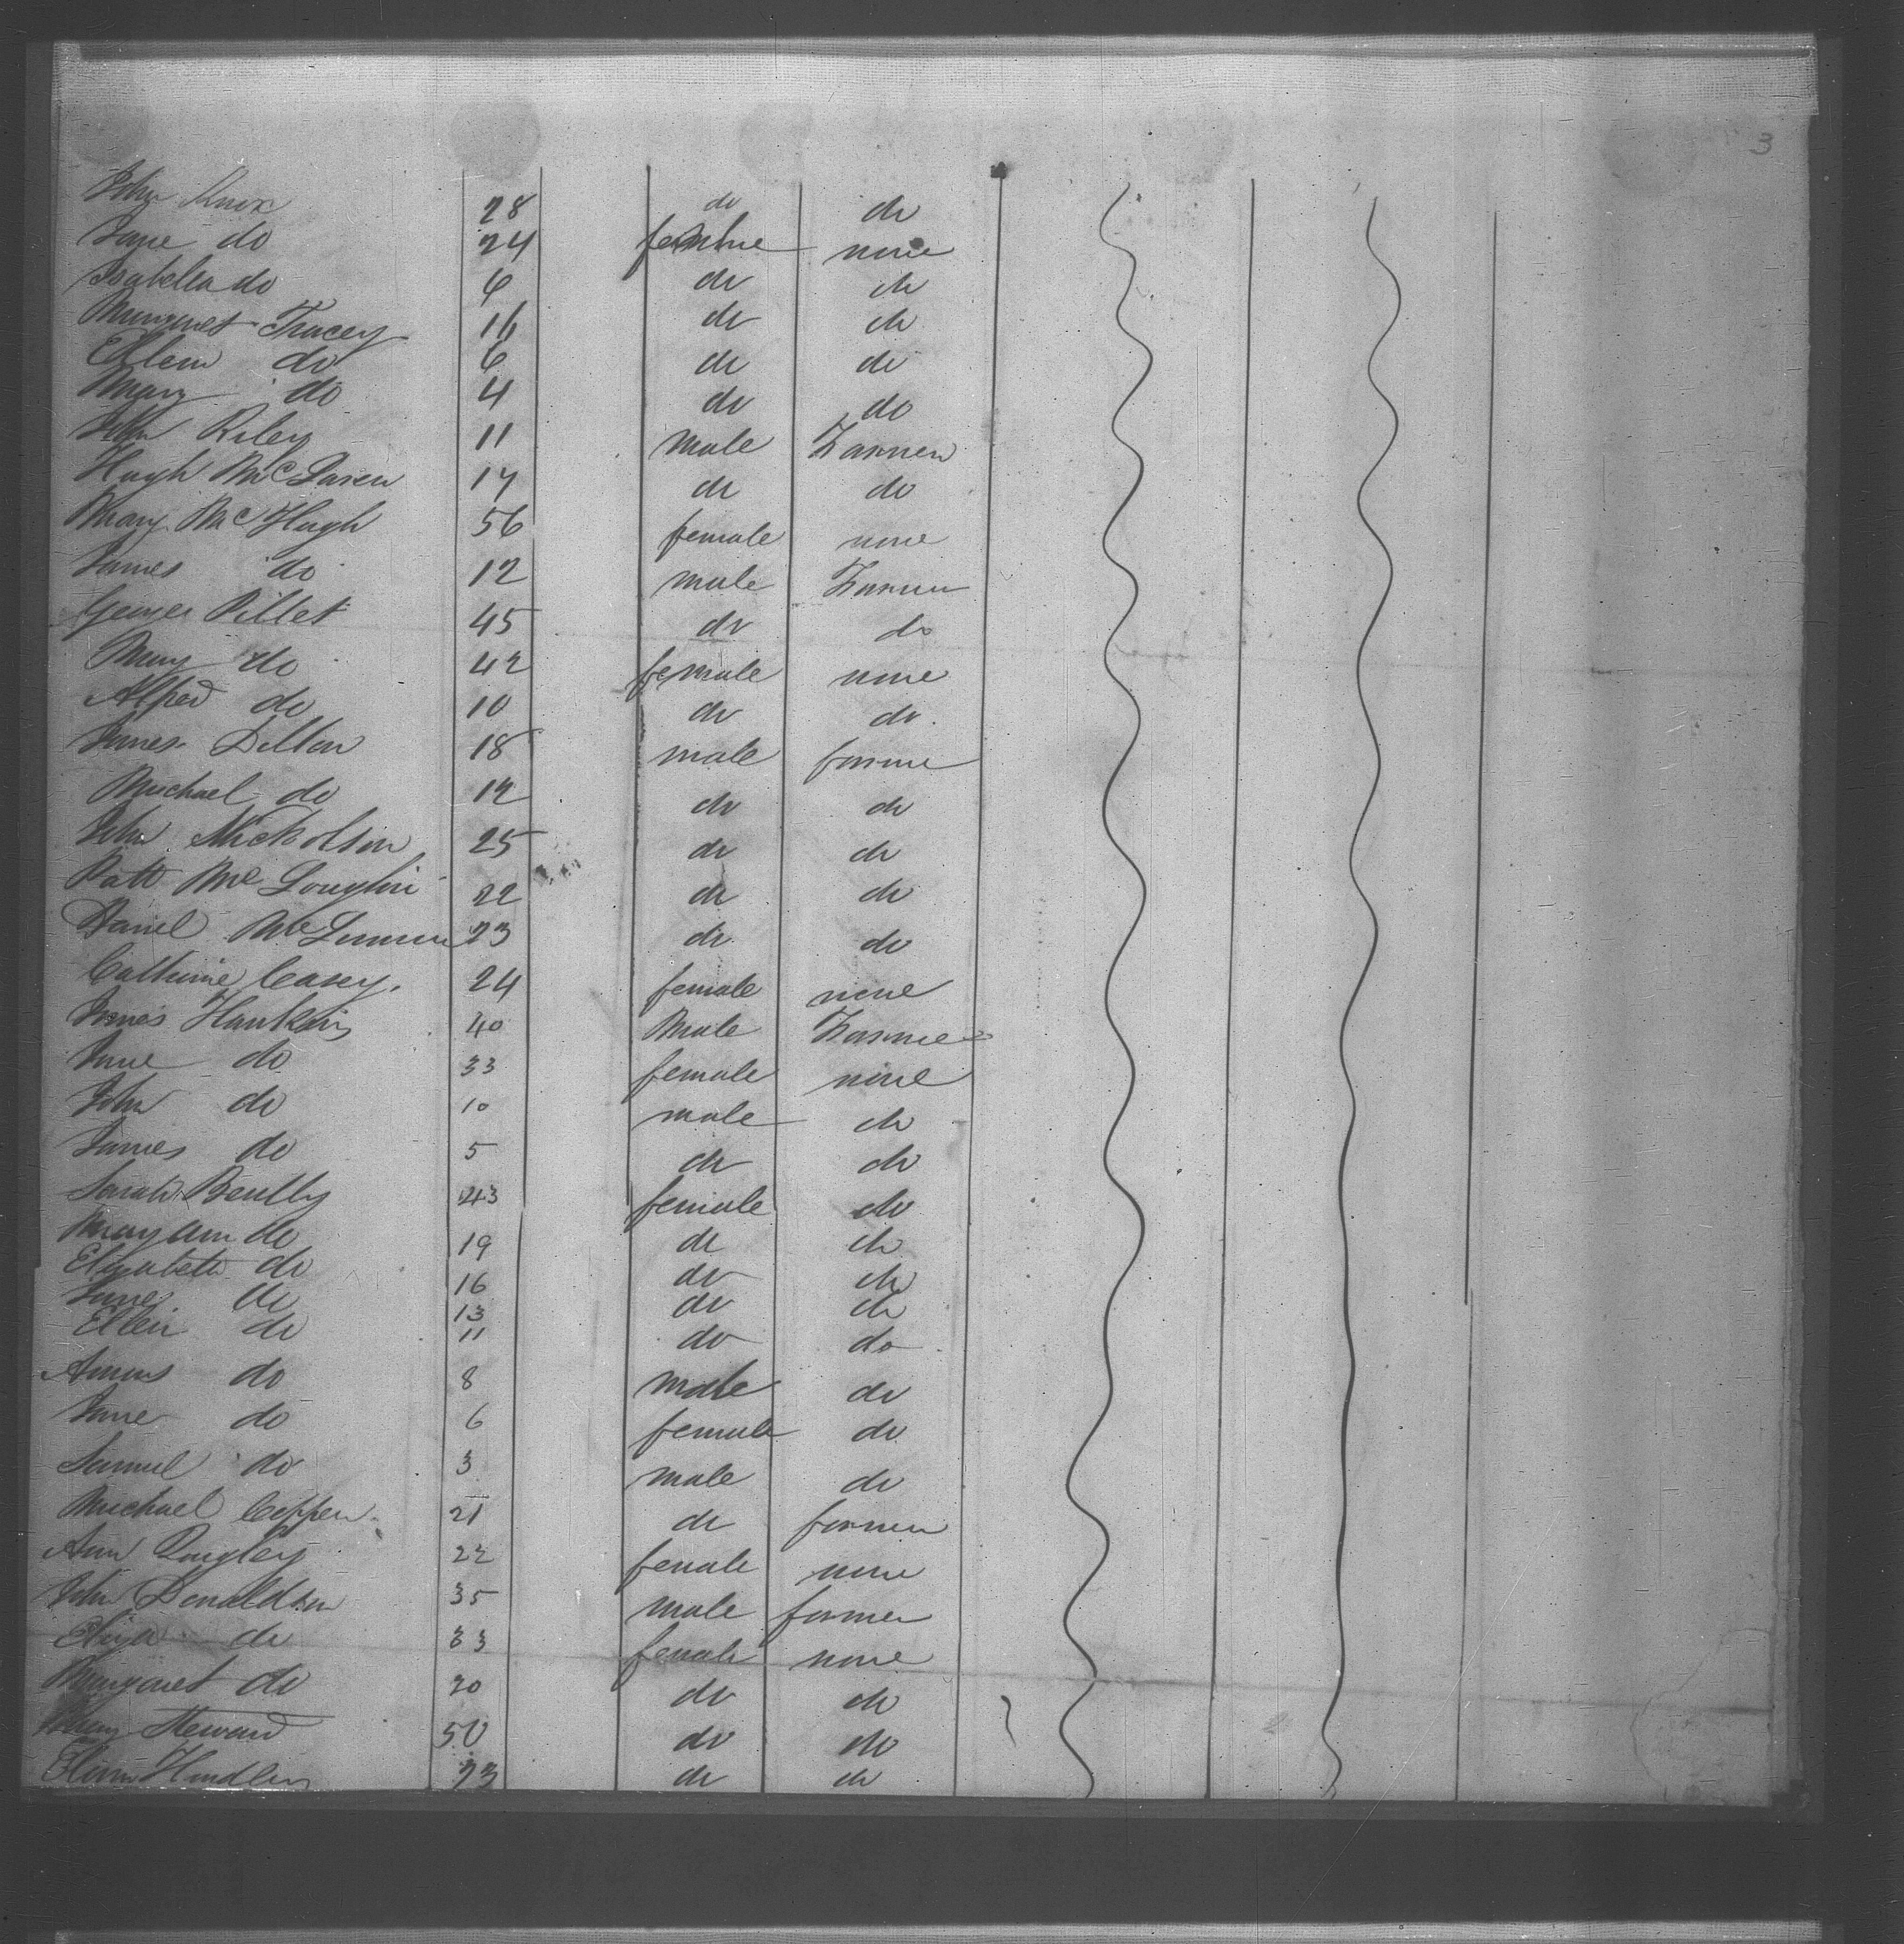 3
John Knox 28 do do
Jane do 24 female none
Isabella do 6 do do
Margaret Tracey 16 do do
Ellen do 6 do do
Mary do 4 do do
John Riley 11 male Farmer
Hugh McLaren 17 do do
Mary McHugh 56 female none
James do 12 male Farmer
George Pillet 45 do do
Mary do 42 female none
Alfred do 10 do do
James Dillon 18 male farmer
Michael do 12 do do
John Nickolson 25 do do
Patt McLoughlin 22 do do
Daniel 23 do do
Catherine Casey. 24 female none
James Hankins 40 Male Farmer
Jane do 33 female none
John do 10 male do
James do 5 do do
Sarah 43 female do
Mary Ann do 19 do do
Elizabeth do 16 do do
Jane do 13 do do
Ellen do 11 do do
Amos do 8 male do
Jane do 6 female do
Samuel do 3 male do
Michael 21 do farmer
Ann Quigley 22 female none
John Donaldson 35 male farmer
Eliza do 33 female none
Margaret do 20 do do
Mary Steward 50 do do
do do